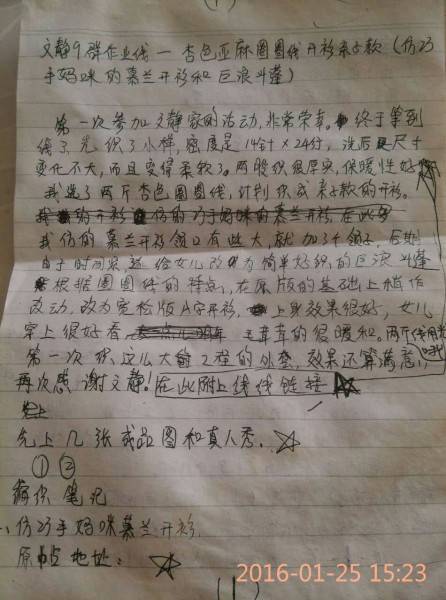 文静9群作业线一杏色亚麻圈圈线开衫亲子款(仿巧
手妈咪的慕兰开衫和巨浪斗篷)
第一次参加文静家的活动,非常荣幸。终于拿到
线了,先织了小样,密度是14针×24行,洗后尺寸
变化不大,而且变得柔软了。两股织很厚实,保暖性好,
我选了两斤杏色圈圈线,计划织成亲子款的开衫。
我仿的慕兰开衫领口有些大,就加了个领子,后期
由于时间紧,送给女儿改为简单好织的巨浪斗篷
根据圈圈线的特点,在原版的基础上稍作
改动,改为宽松版A字开衫,上身效果很好,女儿
穿上很好看 毛茸茸的很暖和。两斤
第一次织这么大工程的外套,效果还算满意,
再次感谢文静!在此附上线线链接
先上几张成品图和真人秀.
① ②
编织笔记
、仿巧手妈咪慕兰开衫.
原帖地址:
(1)
2016-01-25 15:23